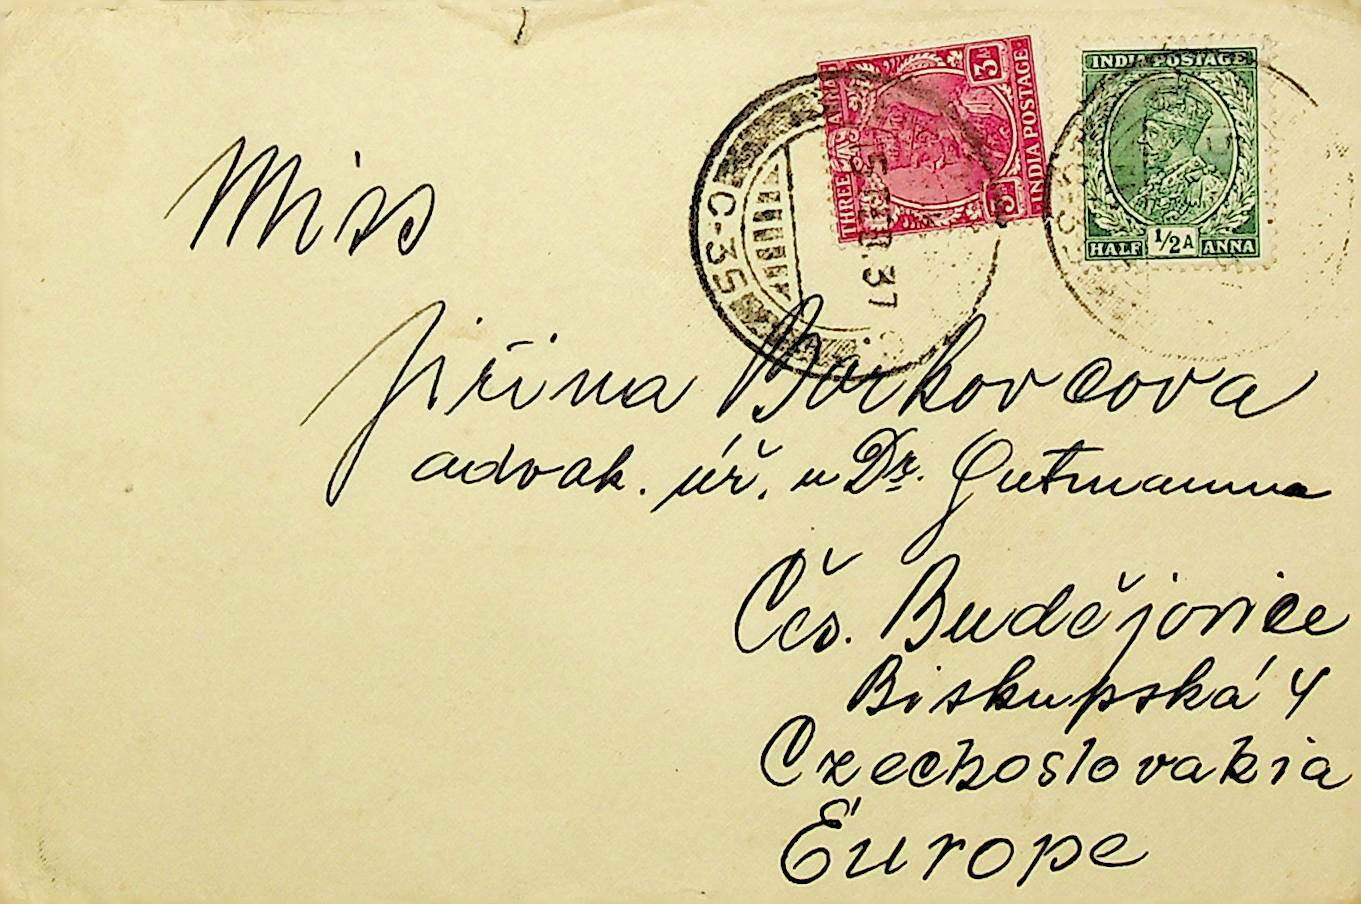 INDIA POSTAGE
3A
THREE ANNAS
3A
INDIA POSTAGE
HALF 1/2A ANNA
C-35
37
Miss
Jiřina Borkovcova
advok. úř. u Dr. Gutmanna
Čes. Budějovice
Biskupská 4
Czechoslovakia
Europe